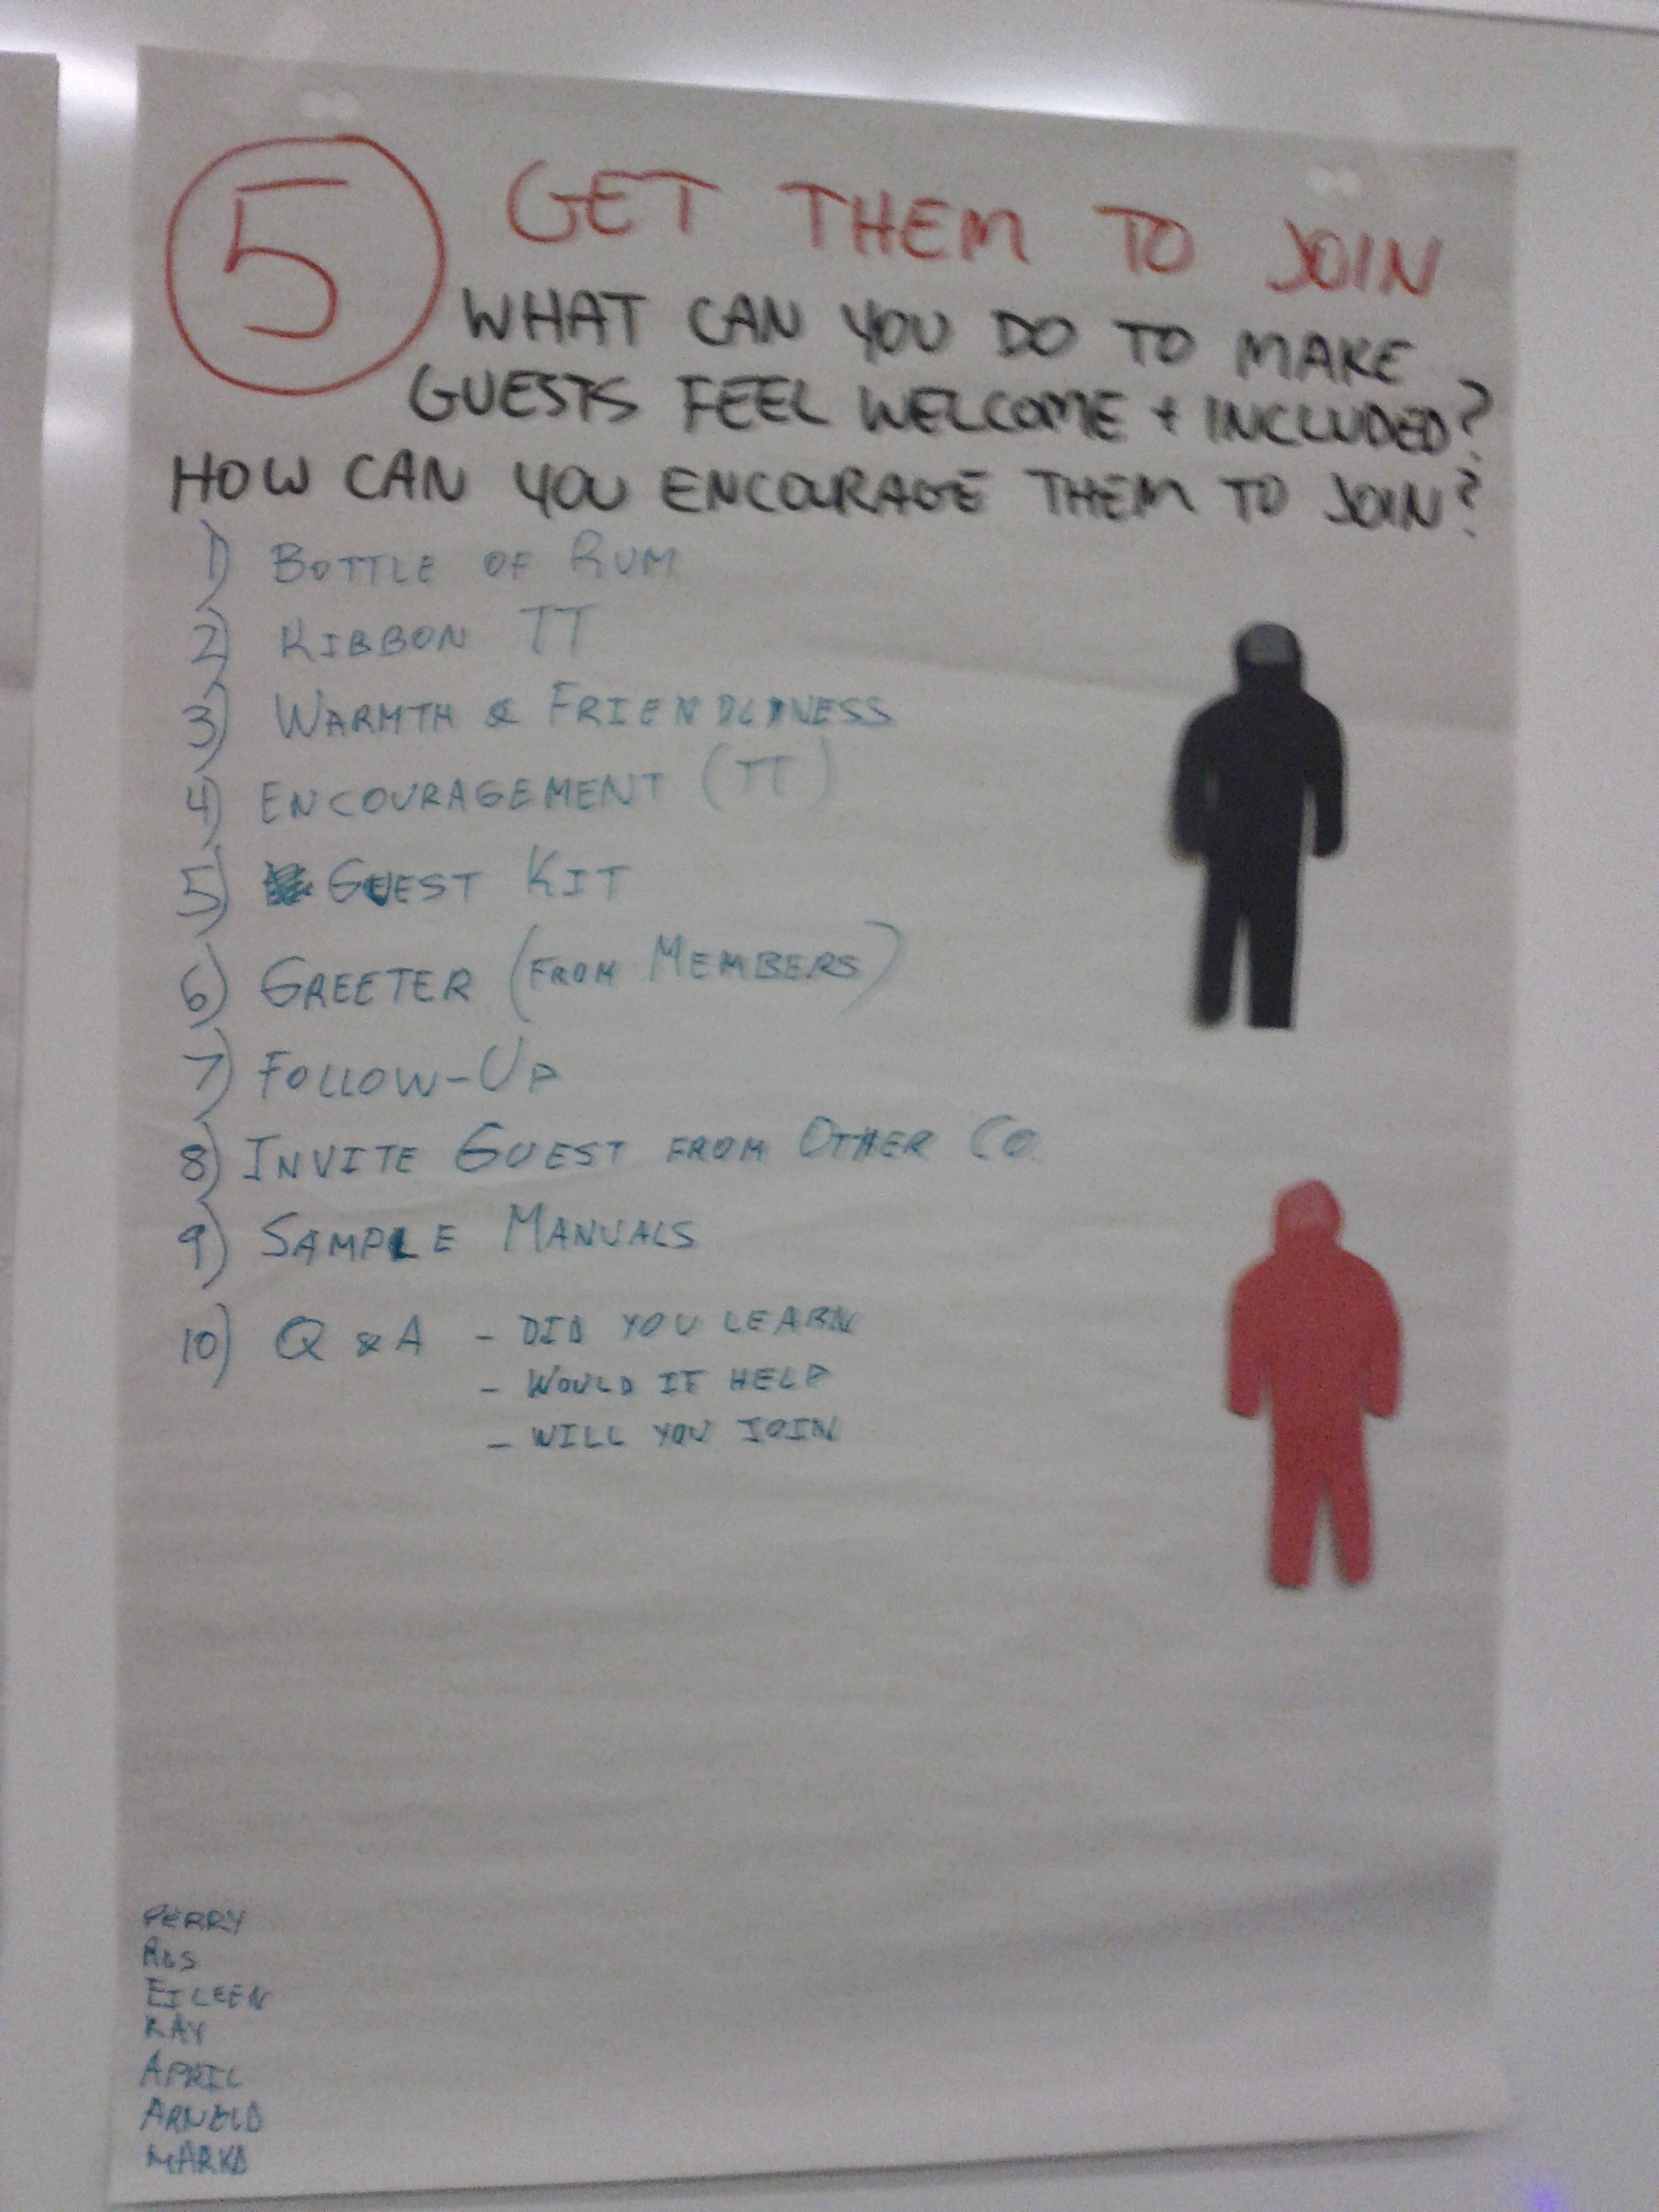 5 GET THEM TO JOIN
WHAT CAN YOU DO TO MAKE
GUESTS FEEL WELCOME + INCLUDED?
HOW CAN YOU ENCOURAGE THEM TO JOIN?
1) BOTTLE OF RUM
2) RIBBON TT
3) WARMTH & FRIENDLINESS
4) ENCOURAGEMENT (TT)
5) GUEST KIT
6) GREETER (FROM MEMBERS)
7) FOLLOW-UP
8) INVITE GUEST FROM OTHER CO.
9) SAMPLE MANUALS
10) Q & A - DID YOU LEARN
- WOULD IT HELP
- WILL YOU JOIN
PERRY
EILEEN
RAY
APRIL
ARNOLD